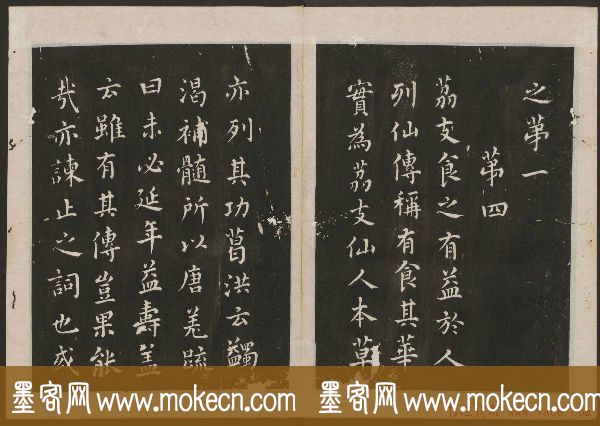 之第一
第四
荔支食之有益於人
列仙傳稱有食其華
實為荔支仙人本草
亦列其功葛洪云蠲
渴補髓所以唐羌疏
曰未必延年益壽盖
云雖有其傳豈果能
哉亦諫止之詞也或
墨客网 www.mokecn.com 墨客网 www.mokecn.com